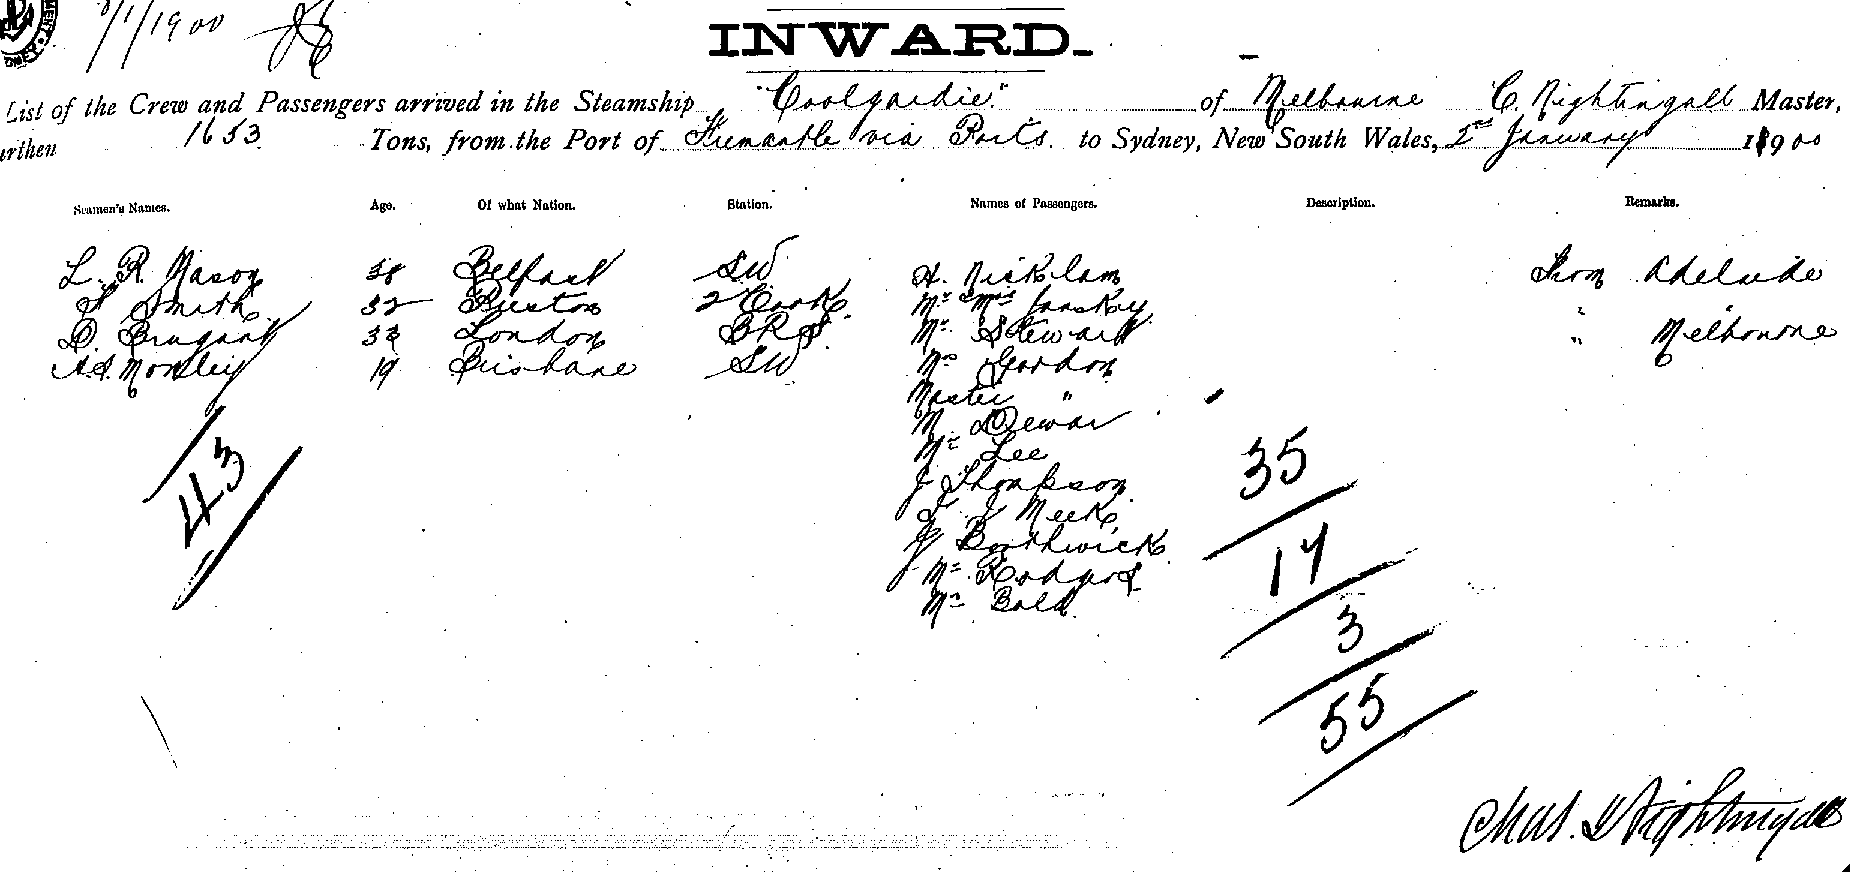 8/1/1900
INWARD.
List of the Crew and Passengers arrived in the Steamship "Coolgardie." of Melbourne C. Nightingall Master,
urthen 1653 Tons, from the Port of Fremantle via Ports. to Sydney, New South Wales, 2nd January 1900
Seamen's Names. Age. Of what Nation. Station. Names of Passengers. Description. Remarks.
L. R. Mason 38 Belfast SW H. Nicklam From Adelaide
Smith 32 Preston 2 Cook Mr & Mrs
D. 33 London B.R.S. Mr Steward " Melbourne
Morley 19 Brisbane SW Mrs Gordon
Master "
M Dewar
Mr Lee
J Thompson
Meek
J Borthwick
Mr Rodgers
Mr Bald
43
35
17
3
55
Chas. Nightingall